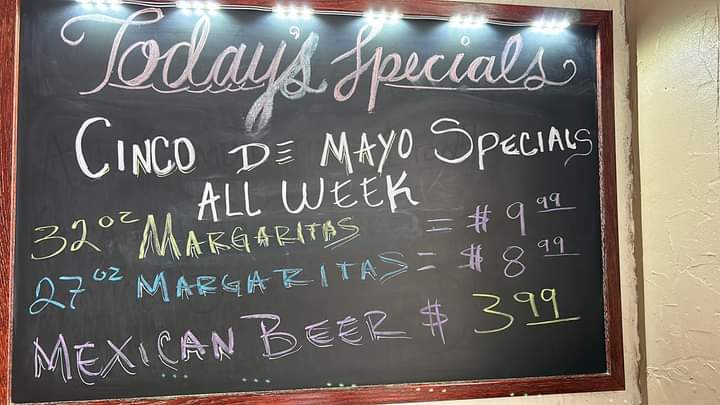 Today's Specials
CINCO DE MAYO SPECIALS
ALL WEEK
32 oz MARGARITAS = $ 9 99
27 oz MARGARITAS = $ 8 99
MEXICAN BEER $ 3 99